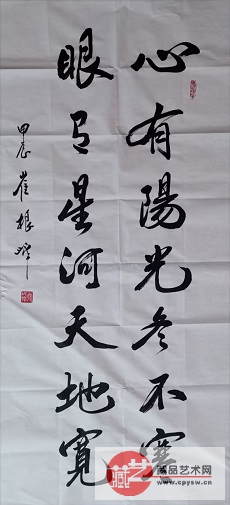 心有陽光冬不寒
眼有星河天地寬
甲辰崔根
藏
藏品艺术网
www.cpysw.cn